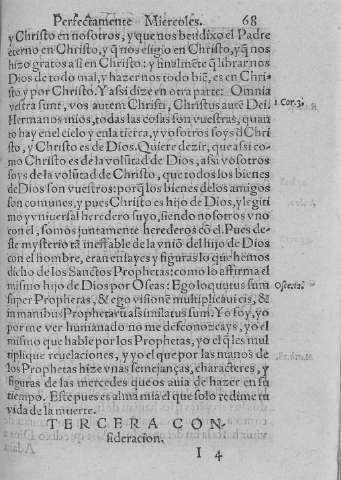 Perfectamente Miercoles. 68
y Christo en nosotros, y que nos bendixo el Padre
eterno en Christo, y q̃ nos eligio en Christo, y q̃ nos
hizo gratos a si en Christo: y finalmẽte q̃ librarnos
Dios de todo mal, y hazernos todo biẽ, es en Chri-
sto y por Christo. Y assi dize en otra parte: Omnia
vestra sunt, vos autem Christi, Christus autẽ Dei. 1. Cor. 3.
Hermanos mios, todas las cosas son vuestras, quan
to hay en el cielo y en la tierra, y vosotros soys d̃ Chri
sto, y Christo es de Dios. Quier dezir, que assi co-
mo Christo es de la volũtad de Dios, assi vosotros
soys de la volũtad de Christo, que todos los bienes
de Dios son vuestros: porq̃ los bienes de los amigos
son comunes, y pues Christo es hijo de Dios, y legiti
mo y vniuersal heredero suyo, siendo nosotros vno
con el, somos juntamente herederos cõ el. Pues de-
ste mysterio tã ineffable de la vniõ del hijo de Dios
con el hombre, eran ensayes y figuras lo que hemos
dicho de los Sanctos Prophetas: como lo affirma el
mismo hijo de Dios por Oseas: Ego loquutus sum Oseæ. 12.
super Prophetas, & ego visionẽ multiplicaui eis, &
in manibus Prophetarũ assimilatus sum. Yo soy, yo
por me ver humanado no me desconozcays, yo el
mismo que hable por los Prophetas, yo el q̃ les mul
tiplique reuelaciones, y yo el que por las manos de
los Prophetas hize vnas semejanças, characteres, y
figuras de las mercedes que os auia de hazer en su
tiempo. Este pues es alma mia el que solo redime tu
vida de la muerte.
TERCERA CON-
sideracion.
I 4